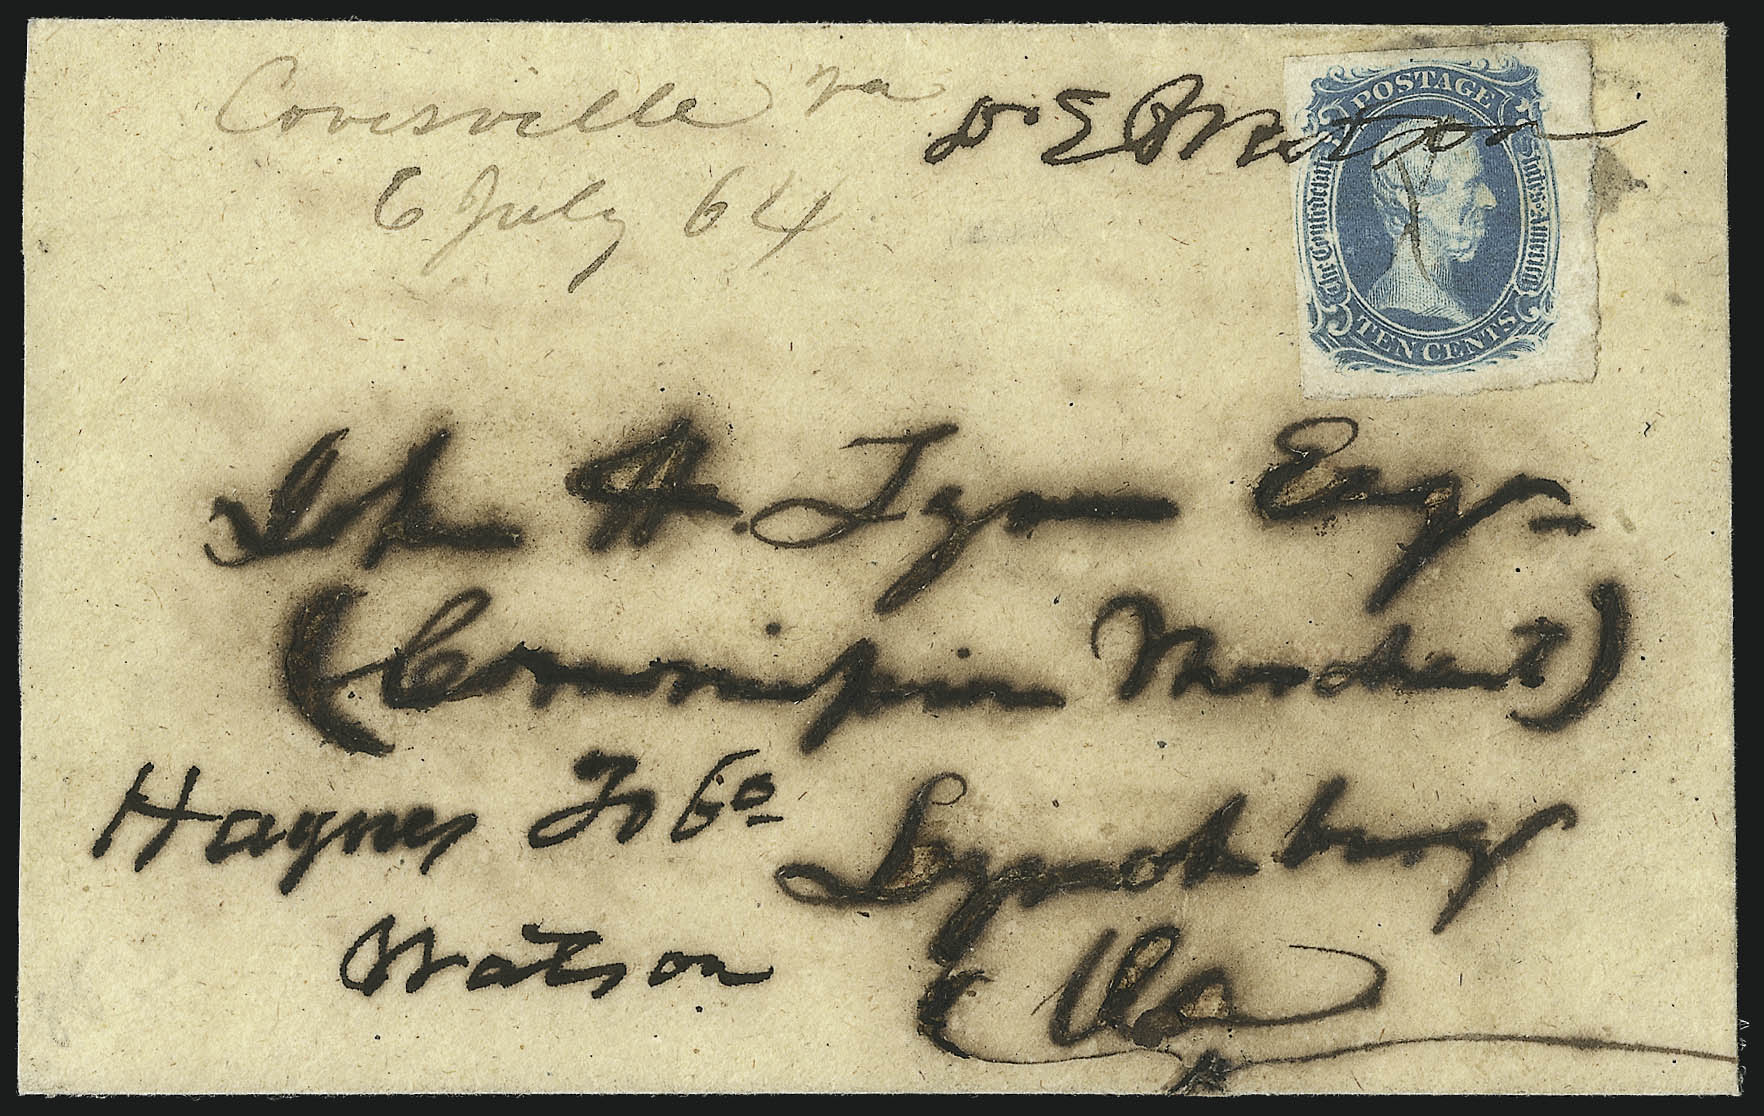 Covisville Va
6 July 64
D. E. Watson
POSTAGE
The Confederate States of America
TEN CENTS
Jnh H. Tyson Esqr
(Commission Merchant)
Haynes Co
Lynchburg
Watson
Va